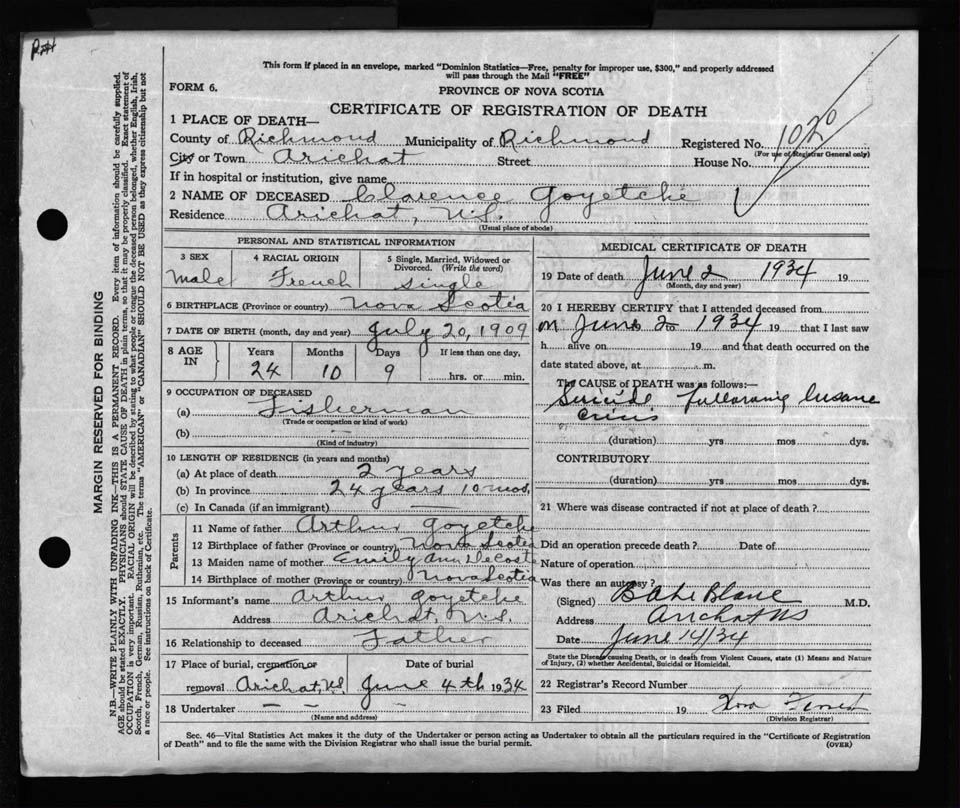 This form if placed in an envelope, marked "Dominion Statistics—Free, penalty for improper use, $300," and properly addressed
will pass through the Mail "FREE"
FORM 6.
PROVINCE OF NOVA SCOTIA
CERTIFICATE OF REGISTRATION OF DEATH
1020
MARGIN RESERVED FOR BINDING
N.B.—WRITE PLAINLY WITH UNFADING INK—THIS IS A PERMANENT RECORD. Every item of information should be carefully supplied.
AGE should be stated EXACTLY. PHYSICIANS should STATE CAUSE OF DEATH in plain terms, so that it may be properly classified. Exact statement of
OCCUPATION is very important. RACIAL ORIGIN will be described by stating to what people or tongue the deceased person belonged, whether English, Irish,
Scotch, French, German, Russian, Ruthenian, etc. The terms "AMERICAN" or "CANADIAN" SHOULD NOT BE USED as they express citizenship but not
a race or people. See instructions on back of Certificate.
1 PLACE OF DEATH—
County of Richmond Municipality of Richmond Registered No.
(For use of Registrar General only)
City or Town Arichat Street House No.
If in hospital or institution, give name
2 NAME OF DECEASED Clarence Goyetche
Residence Arichat, N.S.
(Usual place of abode)
PERSONAL AND STATISTICAL INFORMATION
3 SEX 4 RACIAL ORIGIN 5 Single, Married, Widowed or
Divorced. (Write the word)
Male French Single
6 BIRTHPLACE (Province or country) Nova Scotia
7 DATE OF BIRTH (month, day and year) July 20, 1909
8 AGE IN Years Months Days If less than one day,
24 10 9 hrs. or min.
9 OCCUPATION OF DECEASED
(a) Fisherman
(Trade or occupation or kind of work)
(b) —
(Kind of industry)
10 LENGTH OF RESIDENCE (in years and months)
(a) At place of death 2 years
(b) In province 24 years 10 mos.
(c) In Canada (if an immigrant) —
Parents
11 Name of father Arthur Goyetche
12 Birthplace of father (Province or country) Nova Scotia
13 Maiden name of mother Emily Ann DeCoste
14 Birthplace of mother (Province or country) Nova Scotia
15 Informant's name Arthur Goyetche
Address Arichat, N.S.
16 Relationship to deceased Father
17 Place of burial, cremation or Date of burial
removal Arichat, N.S. June 4th 1934
18 Undertaker — —
(Name and address)
MEDICAL CERTIFICATE OF DEATH
19 Date of death June 2 1934 19
(Month, day and year)
20 I HEREBY CERTIFY that I attended deceased from
on June 2 1934 19 that I last saw
h alive on 19 and that death occurred on the
date stated above, at m.
The CAUSE OF DEATH was as follows:—
Suicide following Insane
Crisis
(duration) yrs mos dys.
CONTRIBUTORY
(duration) yrs mos dys.
21 Where was disease contracted if not at place of death?
Did an operation precede death? Date of
Nature of operation
Was there an autopsy?
(Signed) M.D.
Address Arichat NS
Date June 14/34
State the Disease causing Death, or in death from Violent Causes, state (1) Means and Nature
of Injury, (2) whether Accidental, Suicidal or Homicidal.
22 Registrar's Record Number
23 Filed 19
(Division Registrar)
Sec. 46—Vital Statistics Act makes it the duty of the Undertaker or person acting as Undertaker to obtain all the particulars required in the "Certificate of Registration
of Death" and to file the same with the Division Registrar who shall issue the burial permit.
(OVER)